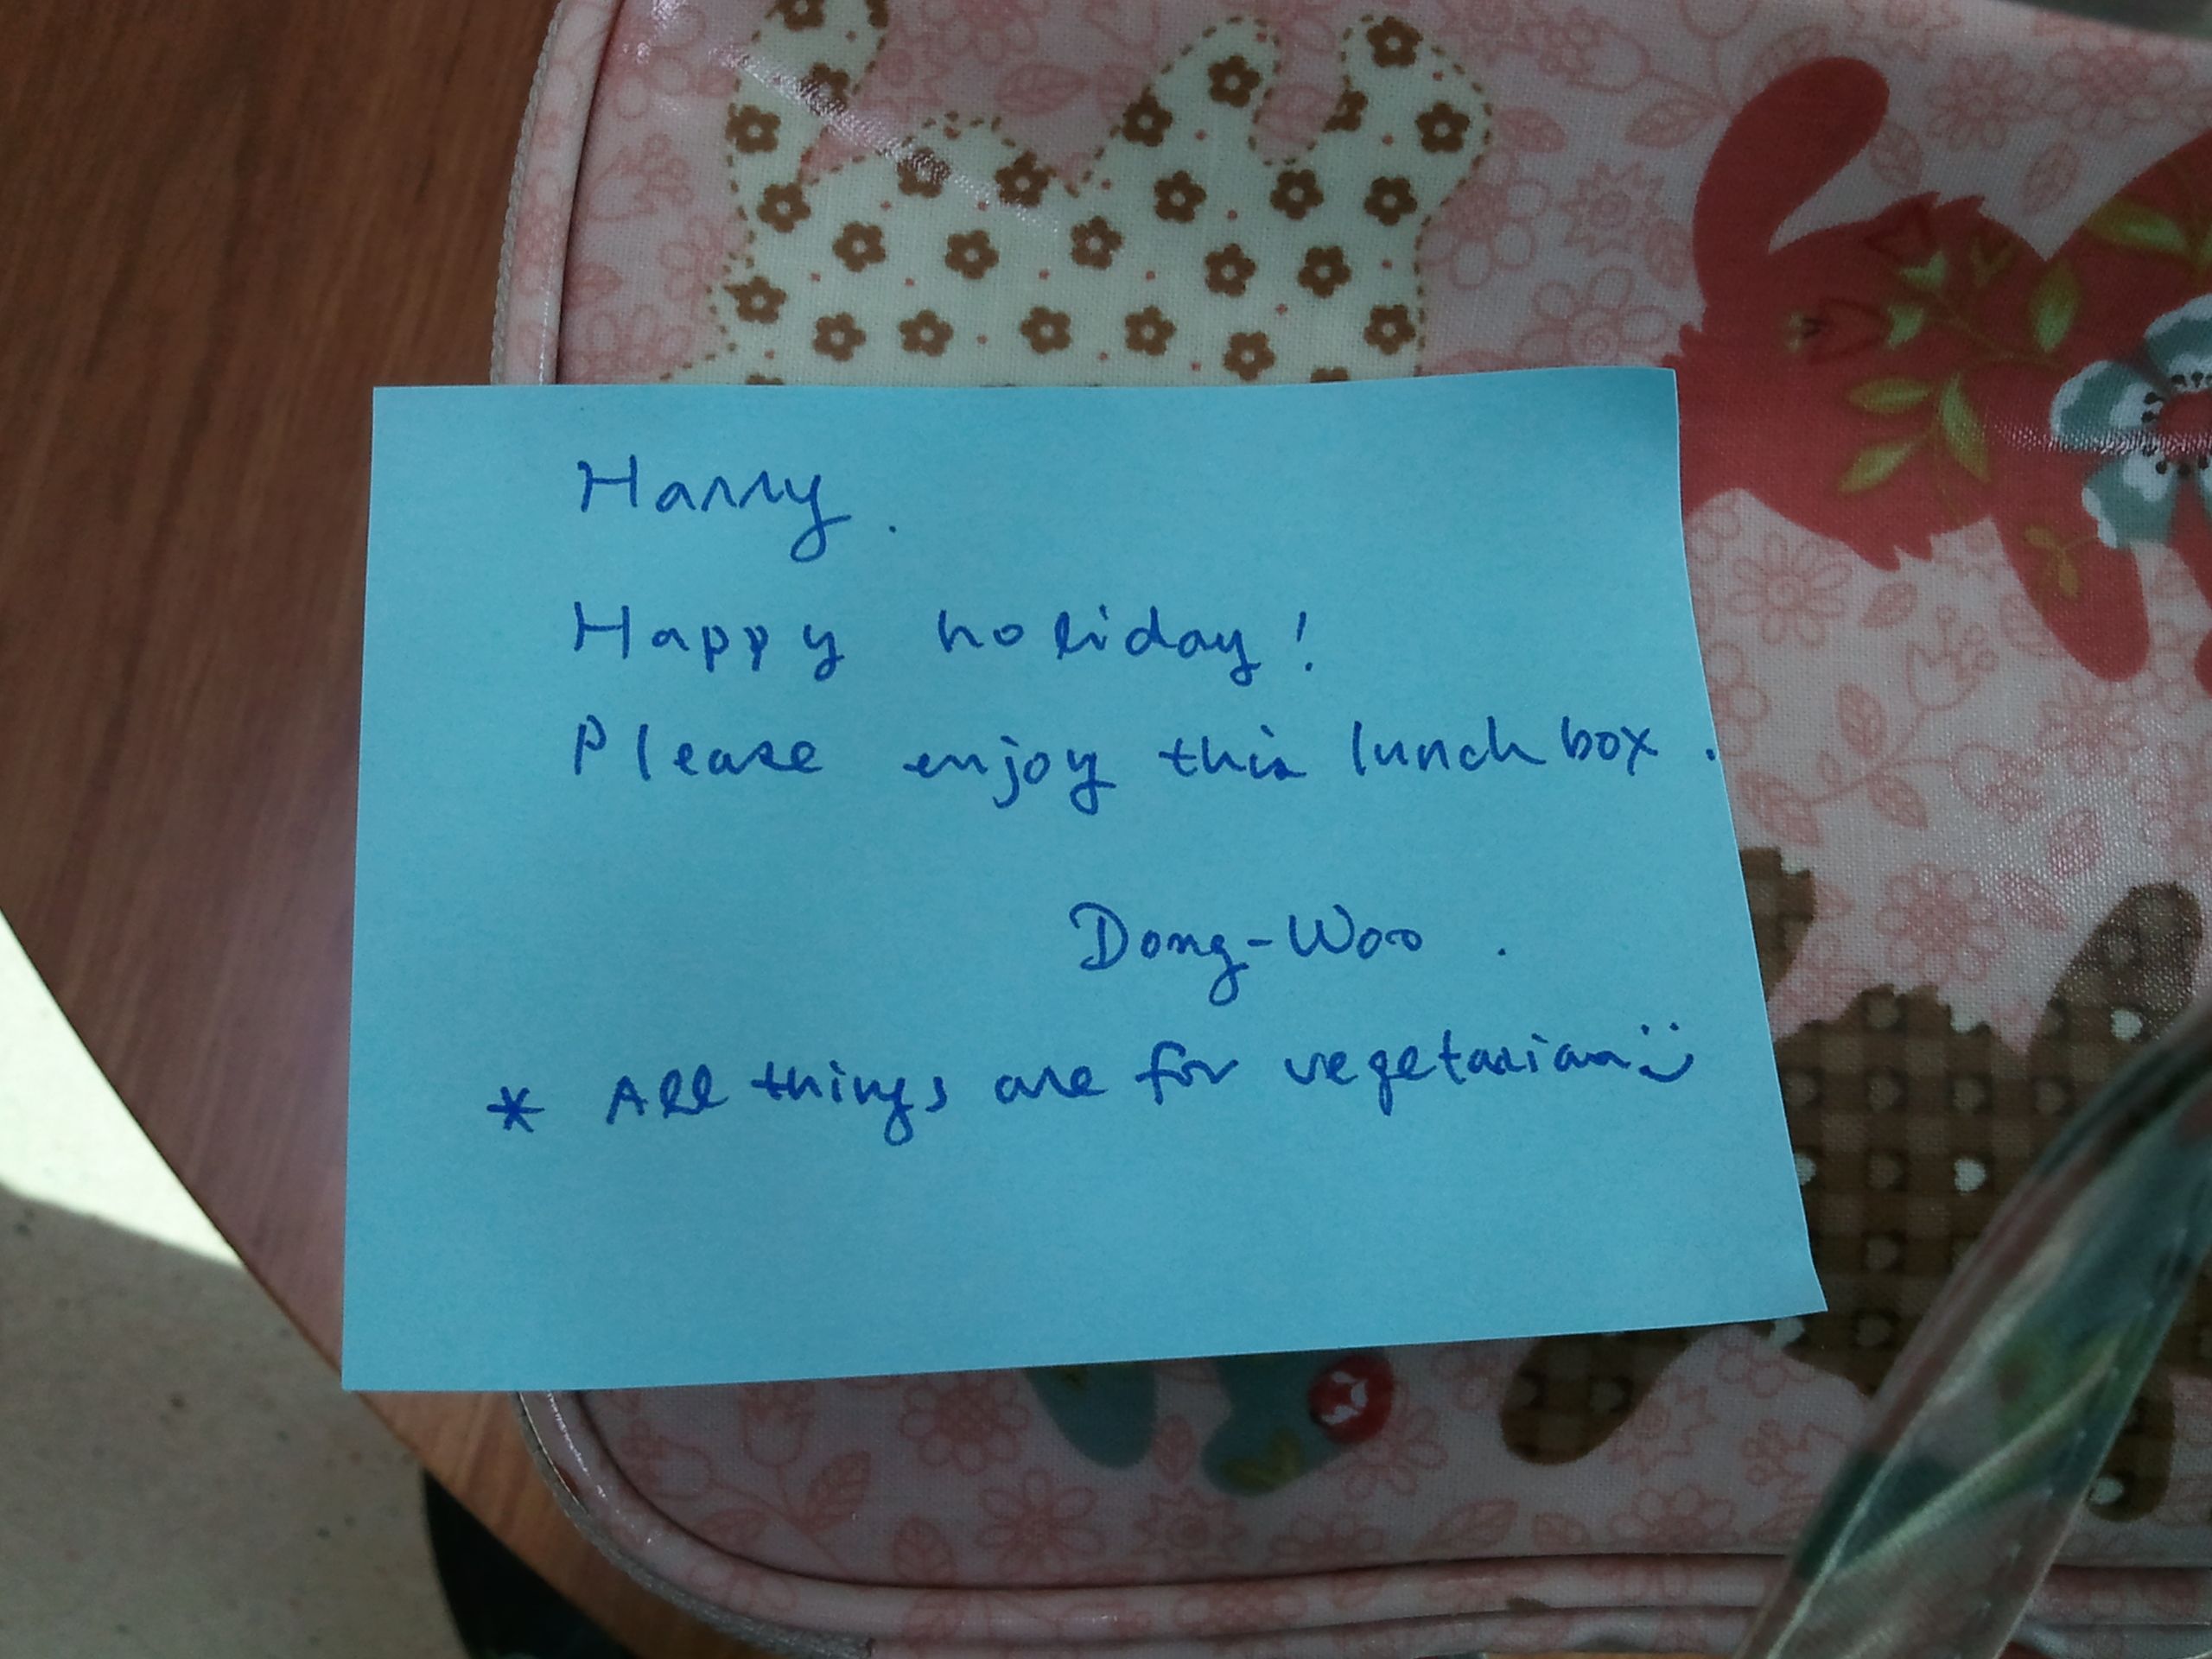 Harry.
Happy holiday!
Please enjoy this lunch box.
Dong-Woo.
* All things are for vegetarian